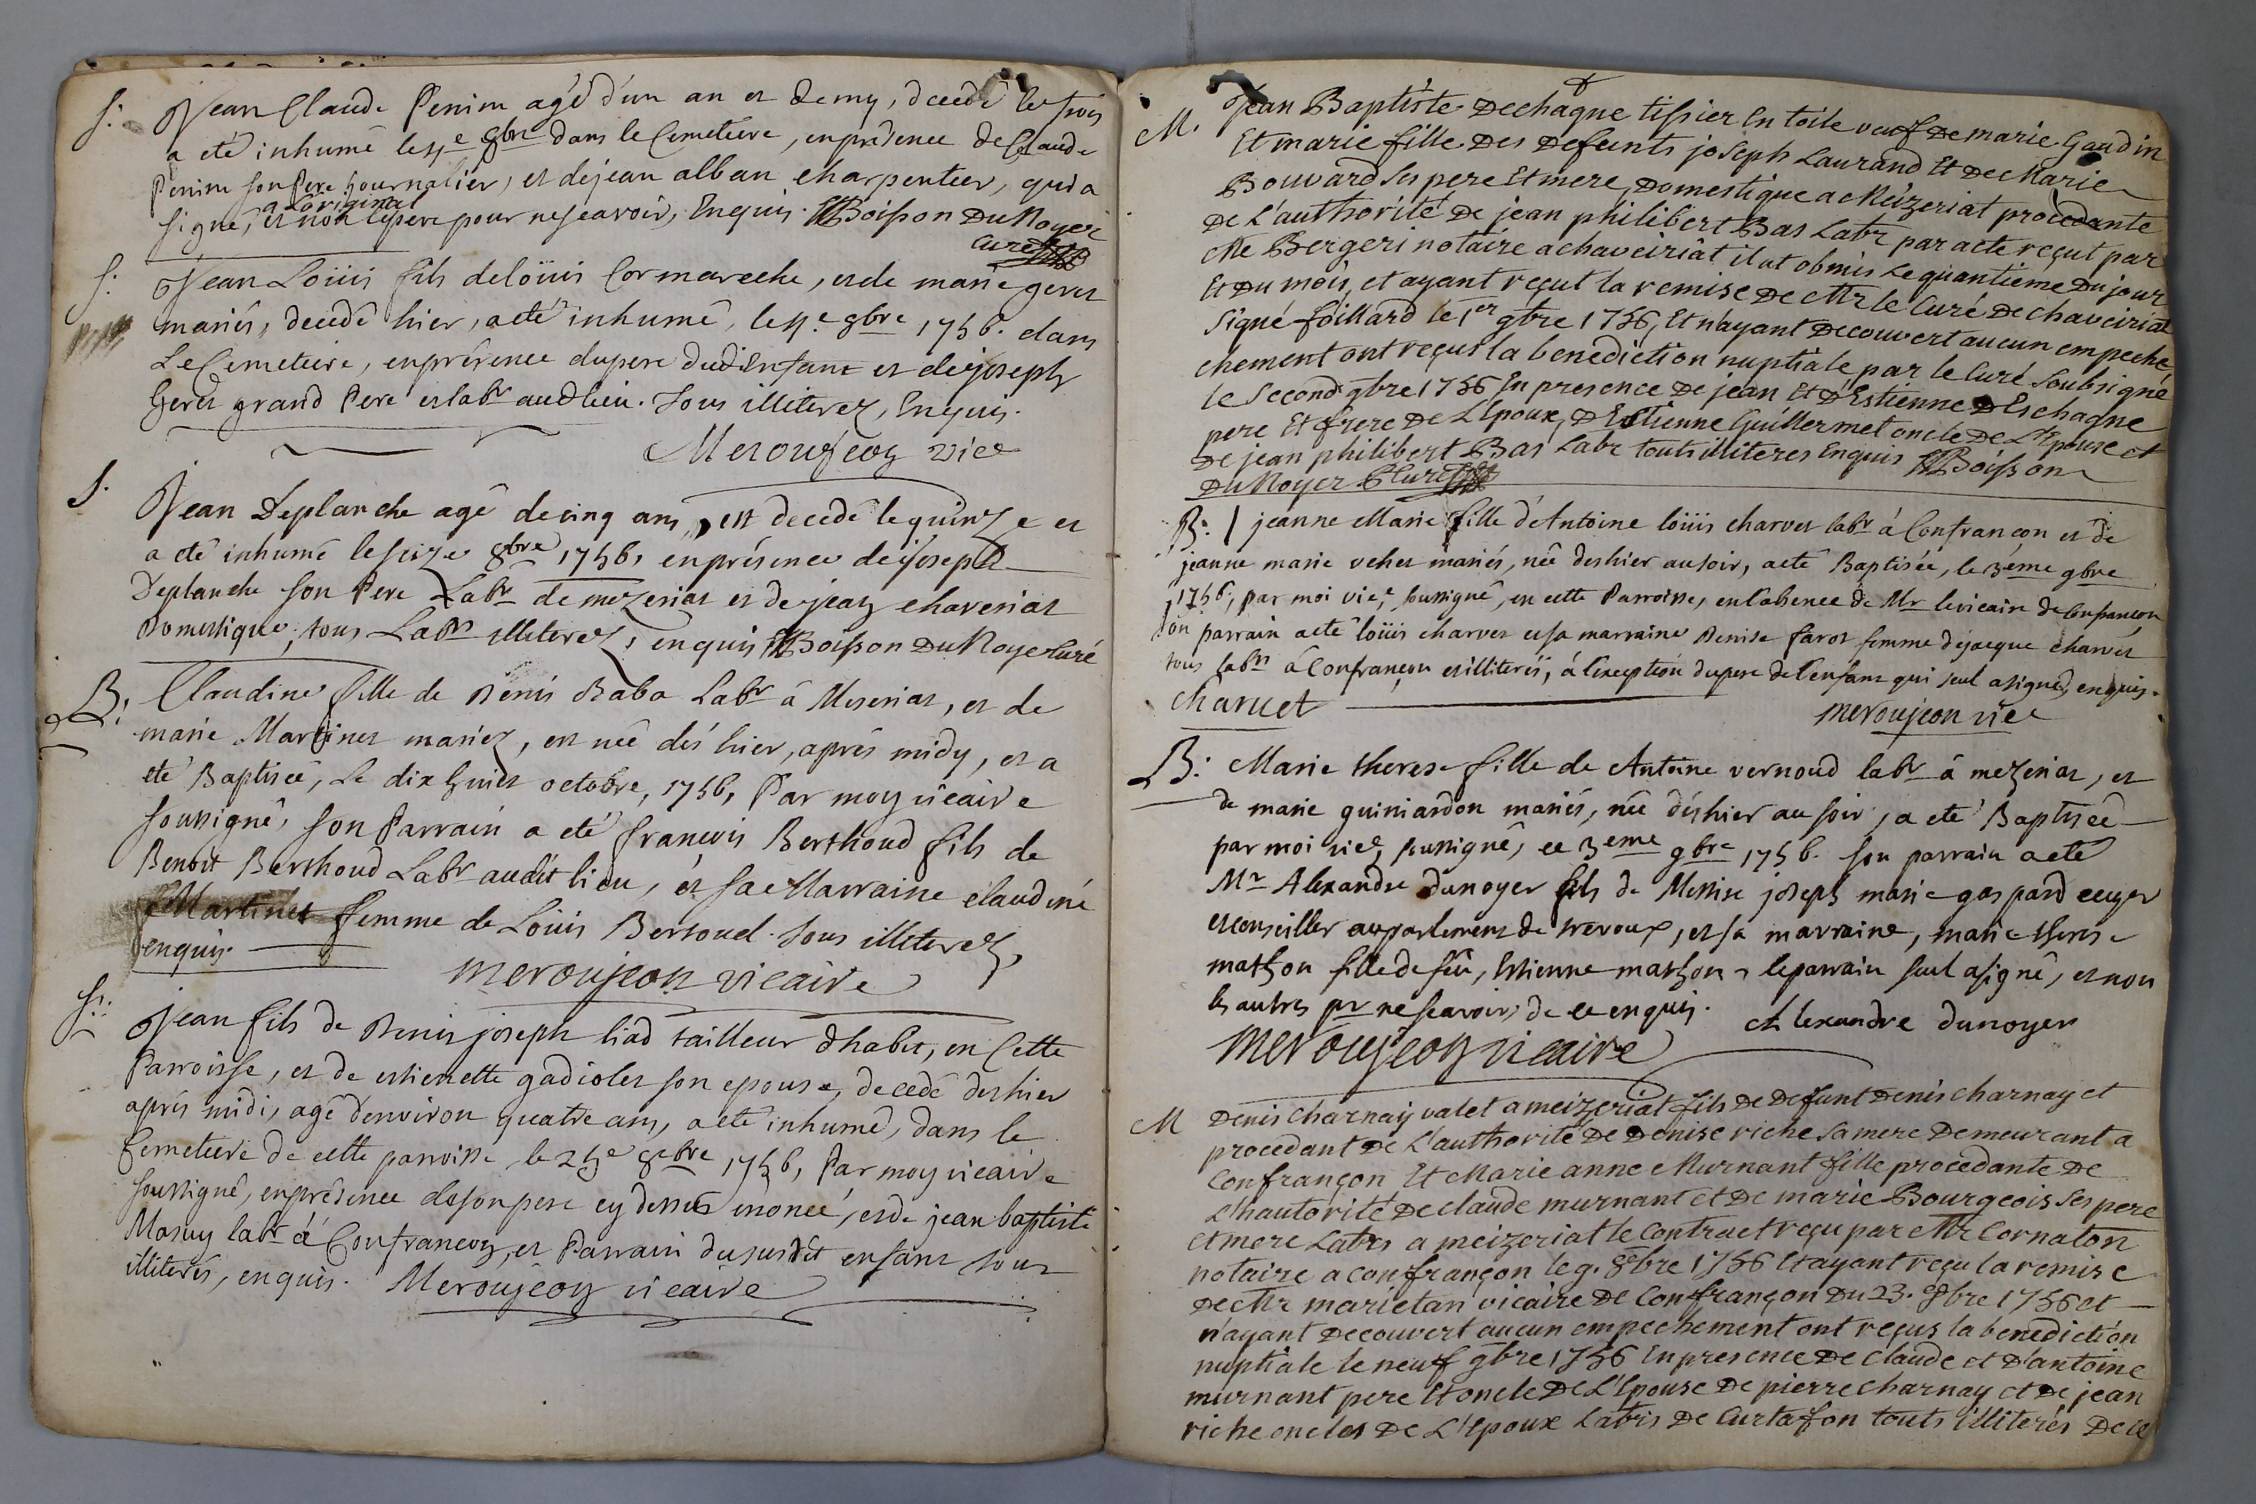 S. Jean Claude Penim agé d'un an et demy, decedé le trois
a eté inhumé le 4e 8bre dans le Cemetiere, en présence de Claude
Penim son Pere journalier, et de jean alban charpentier, qui a
signé, à l'original et non le pere pour ne scavoir, Enquis. Boisson Du Noyer
curé
S. Jean Loüis fils de loüis Cormareche, et de marie geret
mariés, decedé hier, a eté inhumé, le 4.e 8bre 1756. dans
Le Cemetiere, en présence du pere dudit Enfant et de joseph
Geret grand Pere et labr aud. lieu. Tous illiterez, Enquis.
Meroujeon vice
S. Jean Deplanche agé de cinq ans, est decedé le quinze et
a eté inhumé le seize 8bre 1756, en présence de joseph
Deplanche son Pere Labr de mezeriat et de jean chaveriat
Domestique, tous Labrs illiterez, enquis Boisson Du Noyer Curé
B: Claudine fille de Denis Baba Labr à Meseriat, et de
marie Martinet mariez, est née dès hier, après midy, et a
eté Baptiseé, Le dix huiet octobre, 1756, Par moy vicaire
soussigné, son Parrain a eté francois Berthoud fils de
Benoit Berthoud Labr audit lieu, et sa Marraine claudine
Martinet femme de Loüis Bertoud. Tous illiterez,
enquis.
meroujeon vicaire
S: Jean fils de Denis joseph liad tailleur d'habit, en Cette
Parroisse, et de estiennette gadiolet son epouse, decedé des hier
après midi, agé d'environ quatre ans, a eté inhumé, dans le
Cemetiere de cette parroisse le 25e 8bre 1756, Par moy vicaire
soussigné, en présence de son pere cy dessus énoncé, et de jean baptiste
Masuy labr à Confrancon, et Parrain du susdit enfant tous
illiterés, enquis. Meroujeon vicaire
M. Jean Baptiste Dechagne tissier En toile veuf De marie Gaudin
Et marie fille Des Defunts joseph Laurand Et De Marie
Bouvard ses pere Et mere, Domestique a Meizeriat procedante
De L'authorité De jean philibert Bas Labr par acte reçut par
Me Bergeri notaire a chaveiriat il at obmis Le quantieme Du jour
Et Du mois, et ayant reçut la remise De Mr le Curé De chaveiriat
Signé foillard le 1er 9bre 1756, Et n'ayant Decouvert aucun empeche-
chement ont reçus la benediction nuptiale par le Curé Soubsigné
le Second 9bre 1756 En presence De jean Et D'Estienne Deschagne
pere Et frere De L'Epoux, D'Estienne Guillermet oncle De L'Epouse et
De jean philibert Bas Labr touts illiteres Enquis Boisson
Du Noyer Curé
B: jeanne Marie fille d'Antoine loüis charvet labr à Confrançon et de
jeanne marie vehet mariés, née des hier au soir, a eté Baptisée, le 3éme 9bre
1756, par moi vice soussigné, en cette Parroisse, en l'absence de Mr le vicaire de Confrançon
son parrain a eté loüis charvet et sa marraine Denise farot femme de jacque charvet
tous labrs à Confrançon et illiterés, à l'exception du pere de l'enfant qui seul a signé, enquis.
Charuet
meroujeon vice
B: Marie therese fille de Antoine vernoud labr à mezeriat, et
de marie guiniardon mariés, née dès hier au soir, a eté Baptisée
par moi vice, soussigné, ce 3eme 9bre 1756. son parrain a eté
Mr Alexandre Dunoyer fils de Messire joseph marie gaspard ecuyer
et conseiller au parlement de trevoux, et sa marraine, marie therese
mathon fille de feu, Estienne mathon, le parrain seul a signé, et non
les autres pr ne scavoir, de ce enquis.
Alexandre dunoyer
meroujeon vicaire
M Denis Charnay valet a meizeriat fils De Defunt Denis Charnay et
procedant De L'authorité De Denise riche sa mere Demeurant a
Confrançon Et Marie anne Murnant fille procedante De
L'hautorité De claude murnant et De marie Bourgeois ses pere
et mere Labrs a meizeriat le Contract reçu par Mr Cornaton
notaire a confrançon le 9. 8bre 1756 Et ayant reçu la remise
De Mr marietan vicaire De Confrançon Du 23. 8bre 1756 et
n'ayant Decouvert aucun empechement ont reçus la benediction
nuptiale le neuf 9bre 1756 En presence De claude et D'antoine
murnant pere Et oncle De L'Epouse De pierre charnay et De jean
riche oncles De L'Epoux Labrs De Curtafon touts illiterés De ce